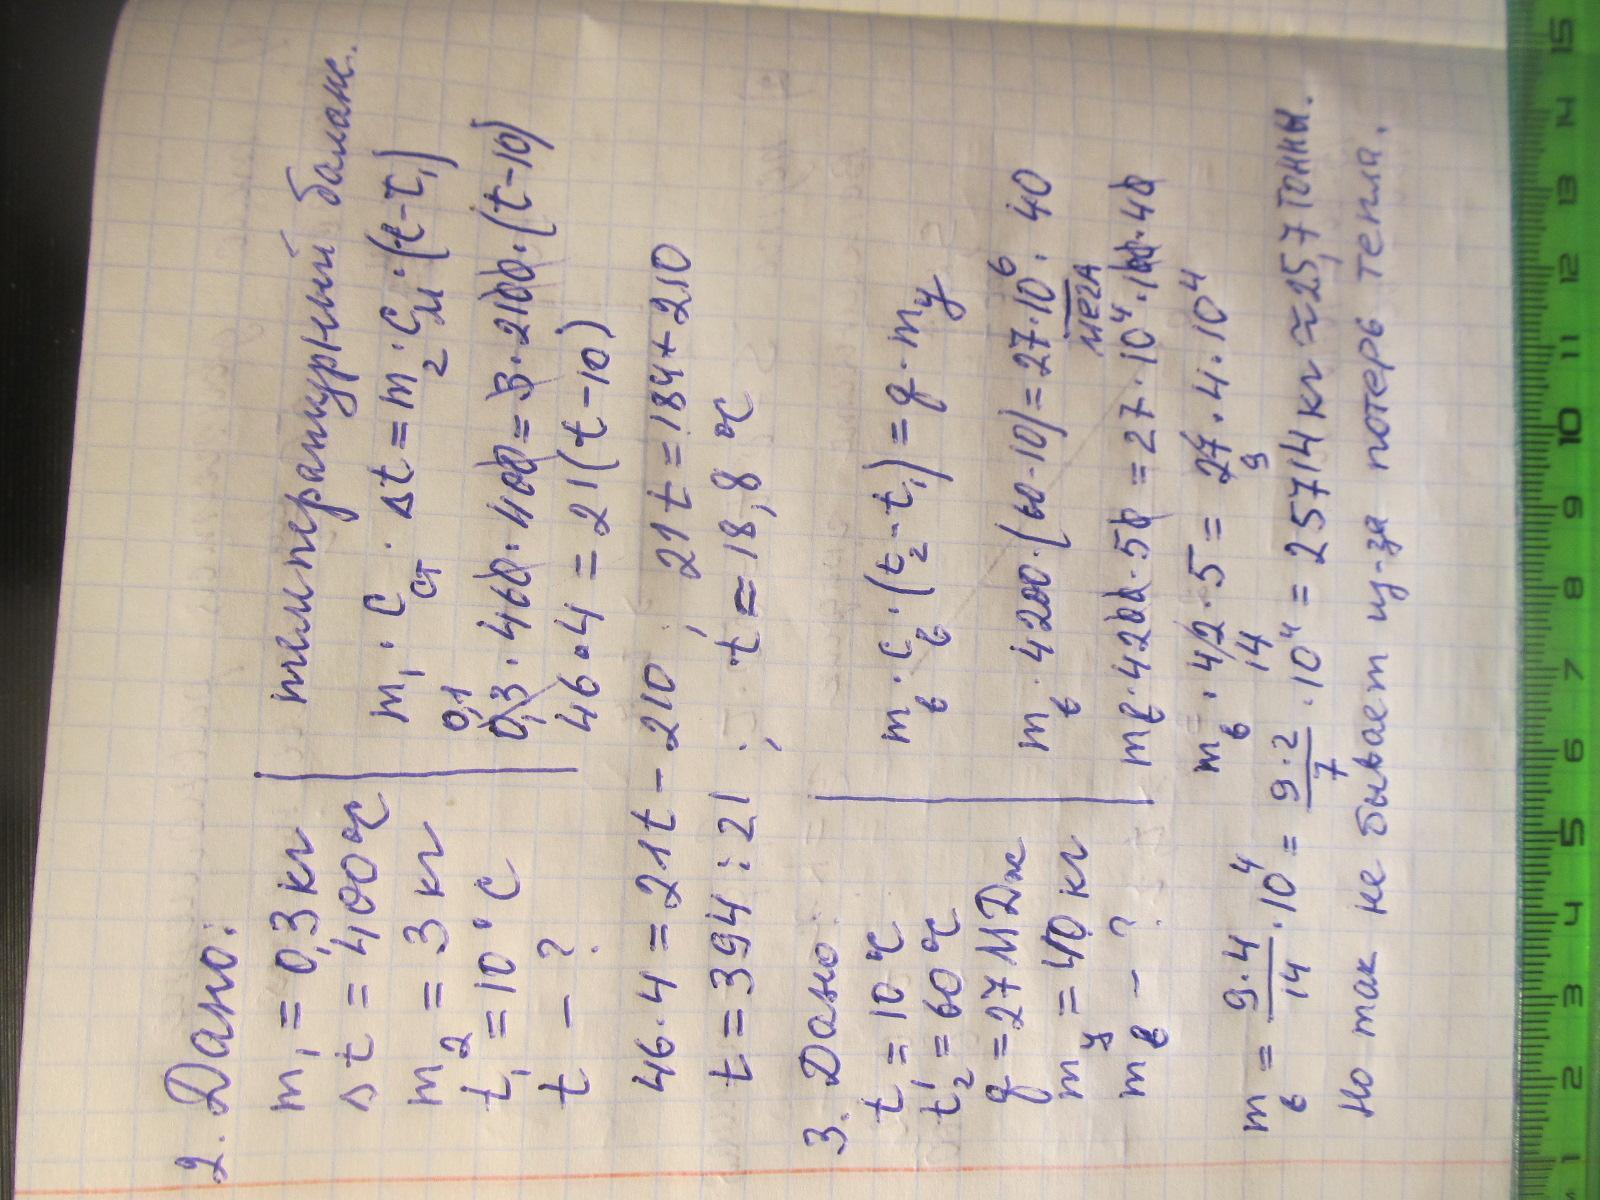 2. Дано:
m₁ = 0,3 кг
Δt = 400 °C
m₂ = 3 кг
t₁ = 10 °C
t – ?
температурный баланс.
m₁ · Cст · Δt = m₂ · Cм · (t – t₁)
0,1
0,3 · 460 · 400 = 3 · 2100 · (t – 10)
46 · 4 = 21 (t – 10)
46 · 4 = 21t – 210 ; 21t = 184 + 210
t = 394 : 21 ; t ≈ 18,8 °C
3. Дано
t₁ = 10 °C
t₂ = 60 °C
q = 27 МДж
mу = 40 кг
mв – ?
mв · Cв · (t₂ – t₁) = q · mу
mв · 4200 · (60 – 10) = 27 · 10⁶ · 40
мега
mв · 4200 · 50 = 27 · 10⁴ · 100 · 40
mв · 42 · 5 = 27 · 4 · 10⁴
14 9
mв = 9·4/14 · 10⁴ = 9·2/7 · 10⁴ = 25714 кг ≈ 25,7 тонны.
Но так не бывает из-за потерь тепла.
1 2 3 4 5 6 7 8 9 10 11 12 13 14 15